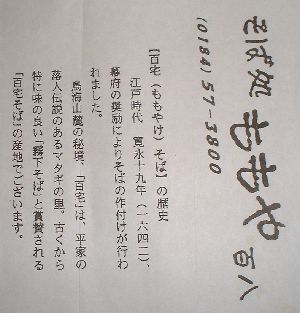 そば処 ももや 百八
(0184)57-3800
【百宅(ももやけ)そば】の歴史
江戸時代 寛永十九年(一六四二)、
幕府の奨励によりそばの作付けが行わ
れました。
鳥海山麓の秘境、「百宅」は、平家の
落人伝説のあるマタギの里。古くから
特に味の良い「霧下そば」と賞賛される
「百宅そば」の産地でございます。